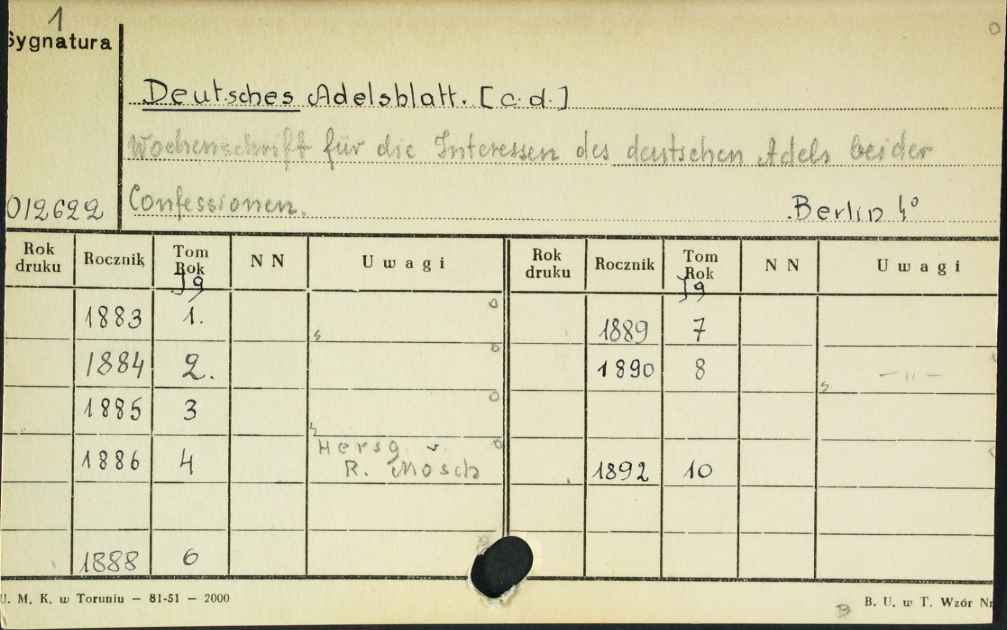 1
Sygnatura
Deutsches Adelsblatt. [c.d.]
Wochenschrift für die Interessen des deutschen Adels beider
012622 Confessionen. Berlin 4°
Rok druku Rocznik Tom Rok NN Uwagi Rok druku Rocznik Tom Rok NN Uwagi
Jg Jg
1883 1. 1889 7
1884 2. 1890 8 - " -
1885 3
Hersg. v.
1886 4 R. Mosch 1892 10
1888 6
U. M. K. w Toruniu — 81-51 — 2000
B B. U. w T. Wzór Nr